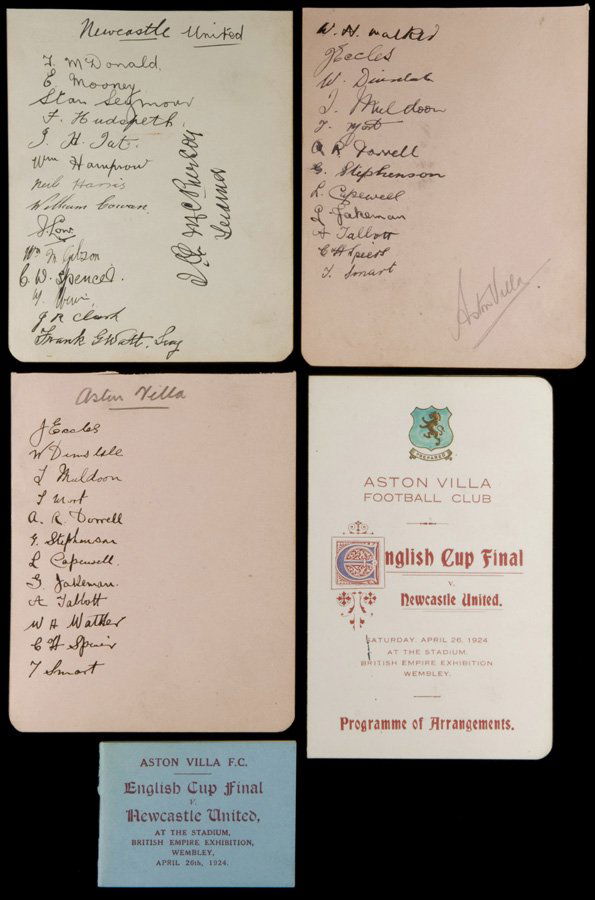 Newcastle United
T. McDonald.
E. Mooney
Stan Seymour
F. Hudspeth.
J. H. Tat.
Wm Hampson
Neil Harris
William Cowan.
J Low
Wm M Gibson
C. W. Spencer.
J R Clark
Frank G Watt. Secy
J Q McPherson
Trainer
W. H. Walker
J Eccles
W. Dinsdale
T. Muldoon
T. Mort
A R Dorrell
G. Stephenson
L. Capewell
G. Jakeman
A Tallott
C H Spiers
T. Smart
Aston Villa
Aston Villa
J Eccles
W Dinsdale
T Muldoon
T Mort
A. R. Dorrell
G. Stephenson
L Capewell.
G. Jakeman.
A Tabbott
W H Walker
C H Spiers
T Smart
PREPARED
ASTON VILLA
FOOTBALL CLUB
English Cup Final
V.
Newcastle United.
SATURDAY. APRIL 26, 1924
AT THE STADIUM.
BRITISH EMPIRE EXHIBITION
WEMBLEY.
Programme of Arrangements.
ASTON VILLA F.C.
English Cup Final
V.
Newcastle United,
AT THE STADIUM,
BRITISH EMPIRE EXHIBITION,
WEMBLEY,
APRIL 26th, 1924.